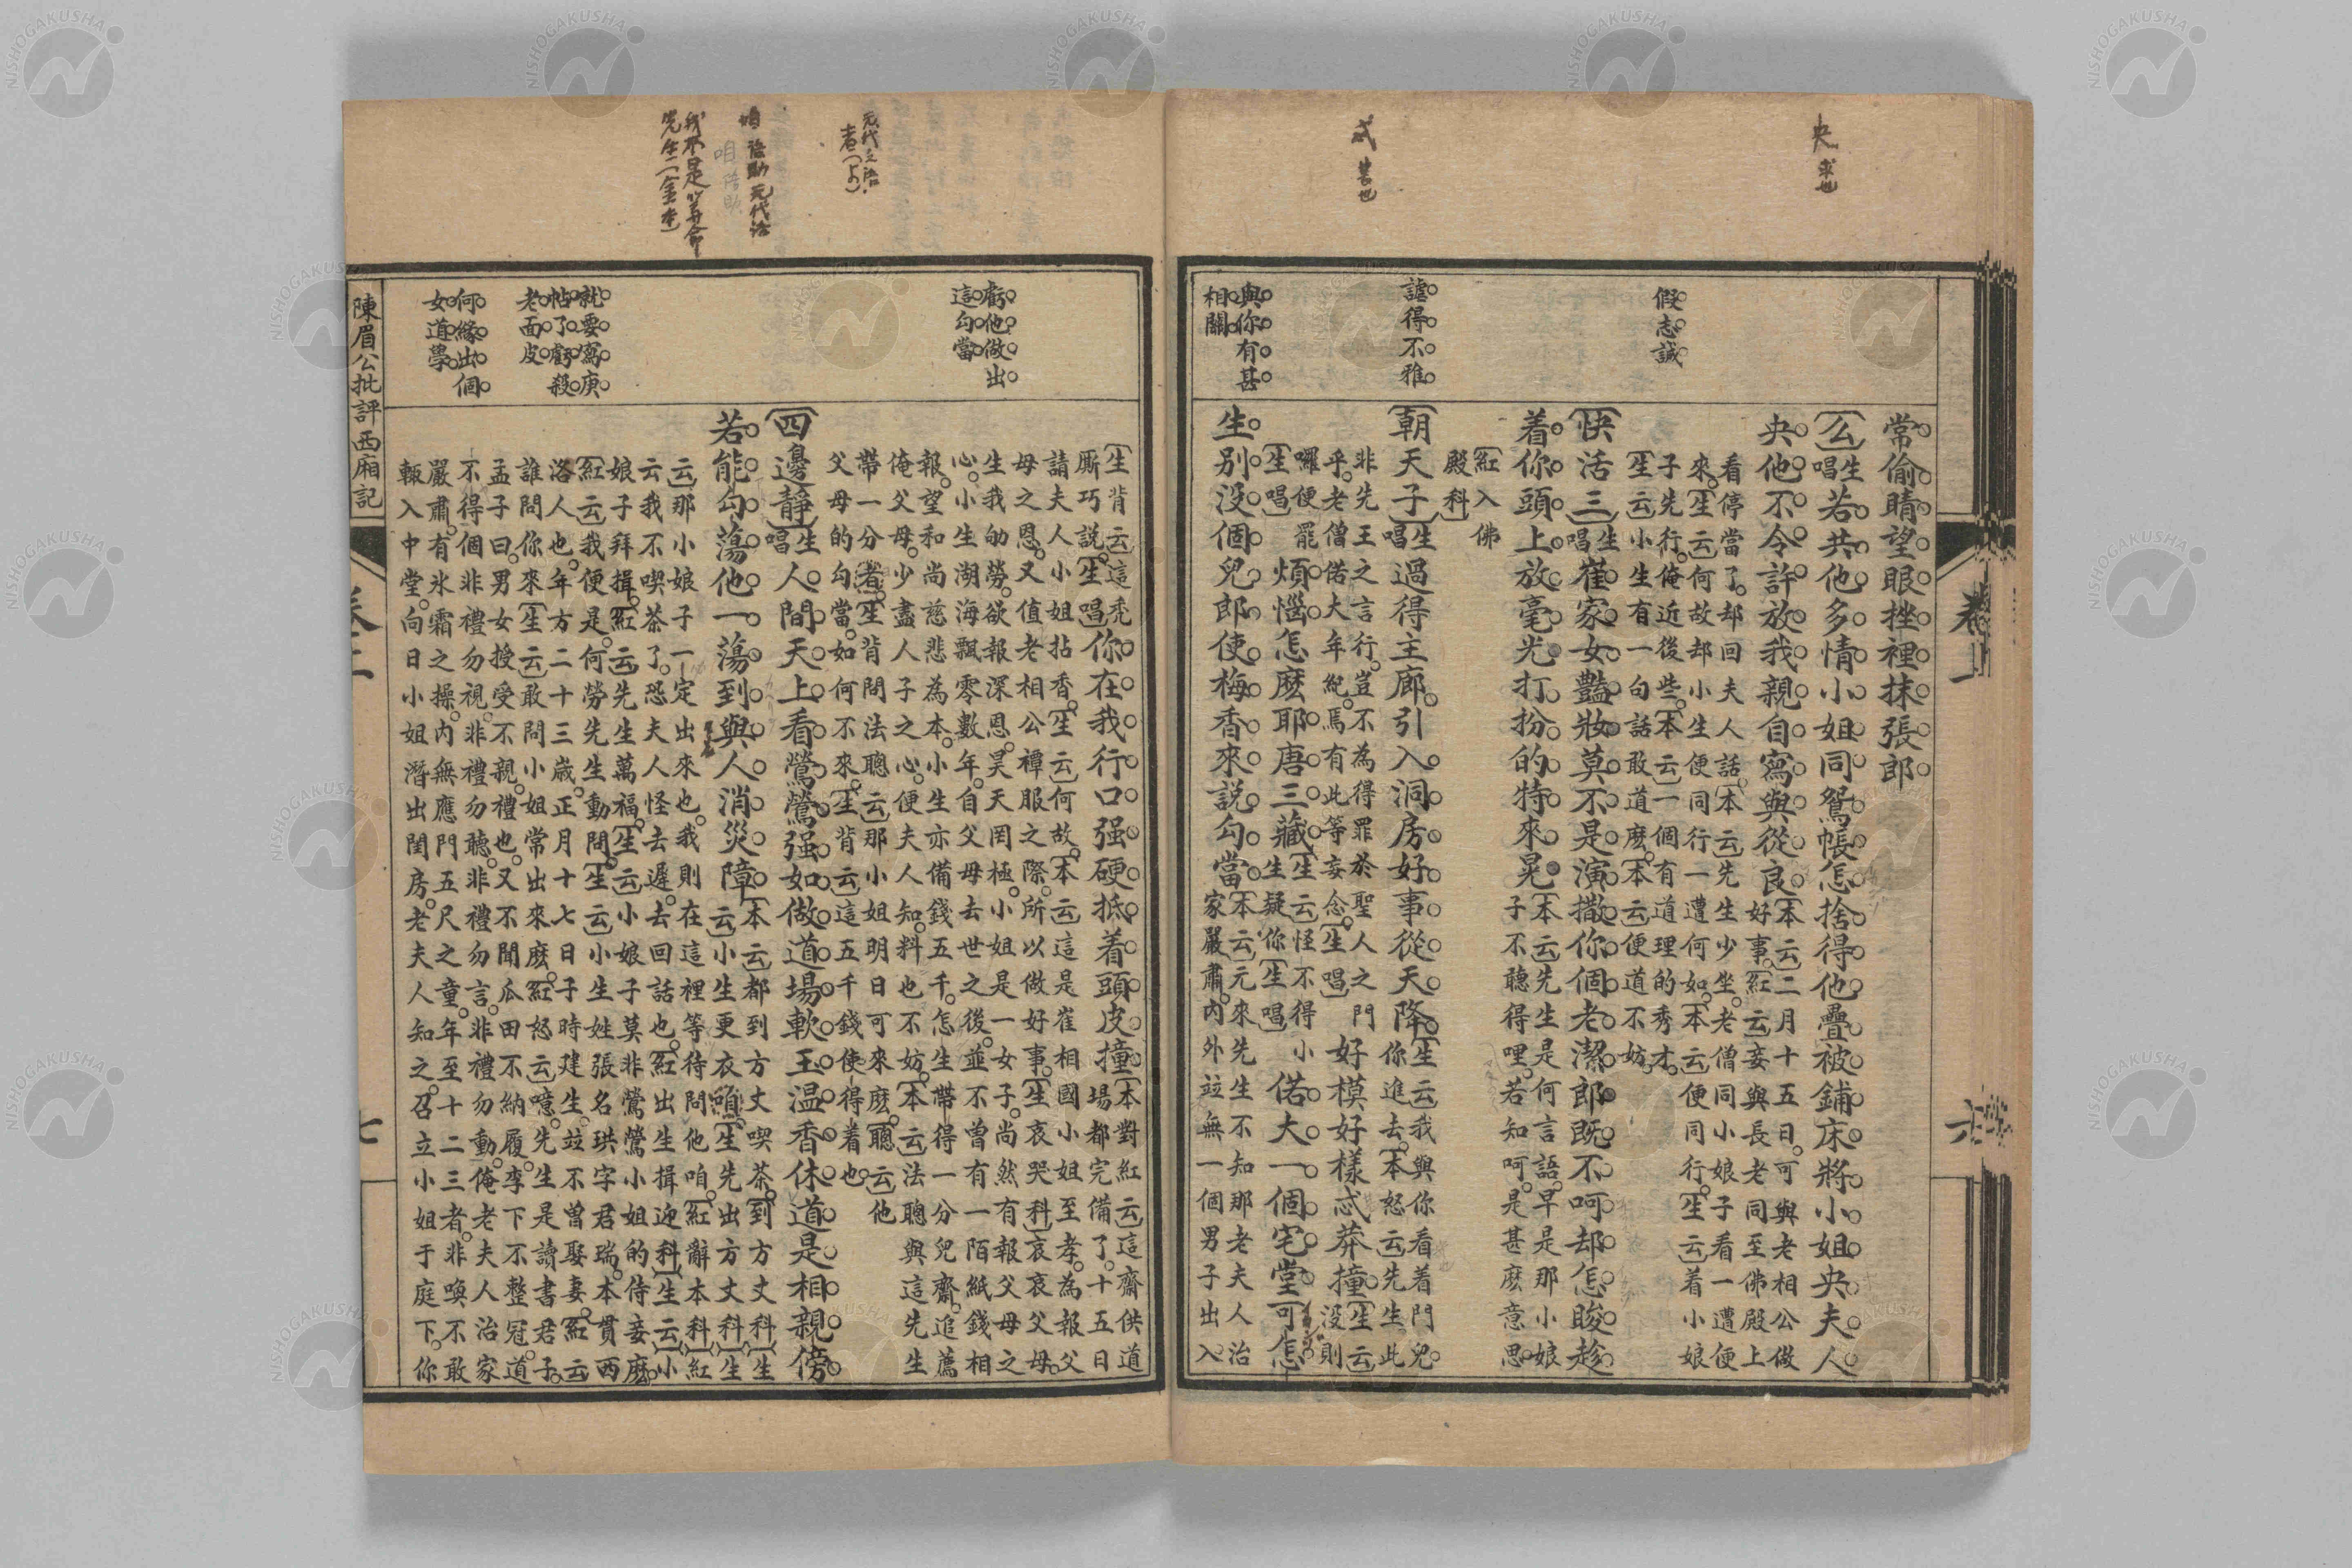 央 求也
忒 甚也
假志誠
謔得不雅
與你有甚
相關
常偷睛望眼挫裡抹張郎
么 生唱 若共他多情小姐同鴛帳怎捨得他疊被鋪床將小姐央夫人
央他不令許放我親自寫與從良
本云二月十五日可與老相公做
好事紅云妾與長老同至佛殿上
看停當了却回夫人話本云先生少坐老僧同小娘子看一遭便
來生云何故却小生便同行一遭何如本云便同行生云着小娘
子先行俺近後些本云一個有道理的秀才
生云小生有一句話敢道麽本云便道不妨
快活三 生唱 崔家女艷妝莫不是演撒你個老潔郎既不呵却怎睃趁
着你頭上放毫光打扮的特來晃
本云先生是何言語早是那小娘
子不聽得哩若知呵是甚麽意思
紅入佛
殿科
朝天子 生唱 過得主廊引入洞房好事從天降
生云我與你看着門兒
你進去本怒云先生此
非先王之言行豈不為得罪於聖人之門
乎老僧偌大年紀焉有此等妄念生唱
好模好樣忒莽撞
生云
沒則
囉便罷
生唱
煩惱怎麽耶唐三藏
生云怪不得小
生疑你生唱
偌大一個宅堂可怎
生別沒個兒郎使梅香來說勾當
本云元來先生不知那老夫人治
家嚴肅內外竝無一個男子出入
元代之語
咱 語助 元代語
咱 語助
我不是算命
先生(金本)
虧他做出
這勾當
就要寫庚
帖了虧殺
老面皮
何緣出個
女道學
生背云這禿
厮巧說生唱
你在我行口强硬抵着頭皮撞
本對紅云這齋供道
場都完備了十五日
請夫人小姐拈香生云何故本云這是崔相國小姐至孝為報父
母之恩又值老相公禫服之際所以做好事生哀哭科哀哀父母
生我劬勞欲報深恩昊天罔極小姐是一女子尚然有報父母之
心小生湖海飄零數年自父母去世之後並不曾有一陌紙錢相
報望和尚慈悲為本小生亦備錢五千怎生帶得一分兒齋追薦
俺父母少盡人子之心便夫人知料也不妨本云法聰與這先生
帶一分者生背問法聰云那小姐明日可來麽聰云他
父母的勾當如何不來生背云這五千錢使得着也
四邊靜 生唱 人間天上看鶯鶯强如做道場軟玉温香休道是相親傍
若能勾蕩他一蕩到與人消災障
本云都到方丈喫茶到方丈科生
云小生更衣順生先出方丈科生
云那小娘子一定出來也我則在這裡等待問他咱紅辭本科紅
云我不喫茶了恐夫人怪去遲去回話也紅出生揖迎科生云小
娘子拜揖紅云先生萬福生云小娘子莫非鶯鶯小姐的侍妾麽
紅云我便是何勞先生動問生云小生姓張名珙字君瑞本貫西
洛人也年方二十三歲正月十七日子時建生竝不曾娶妻紅云
誰問你來生云敢問小姐常出來麽紅怒云噫先生是讀書君子
孟子曰男女授受不親禮也又不聞瓜田不納履李下不整冠道
不得個非禮勿視非禮勿聽非禮勿言非禮勿動俺老夫人治家
嚴肅有氷霜之操內無應門五尺之童年至十二三者非喚不敢
輙入中堂向日小姐潛出閨房老夫人知之召立小姐于庭下你
陳眉公批評西廂記